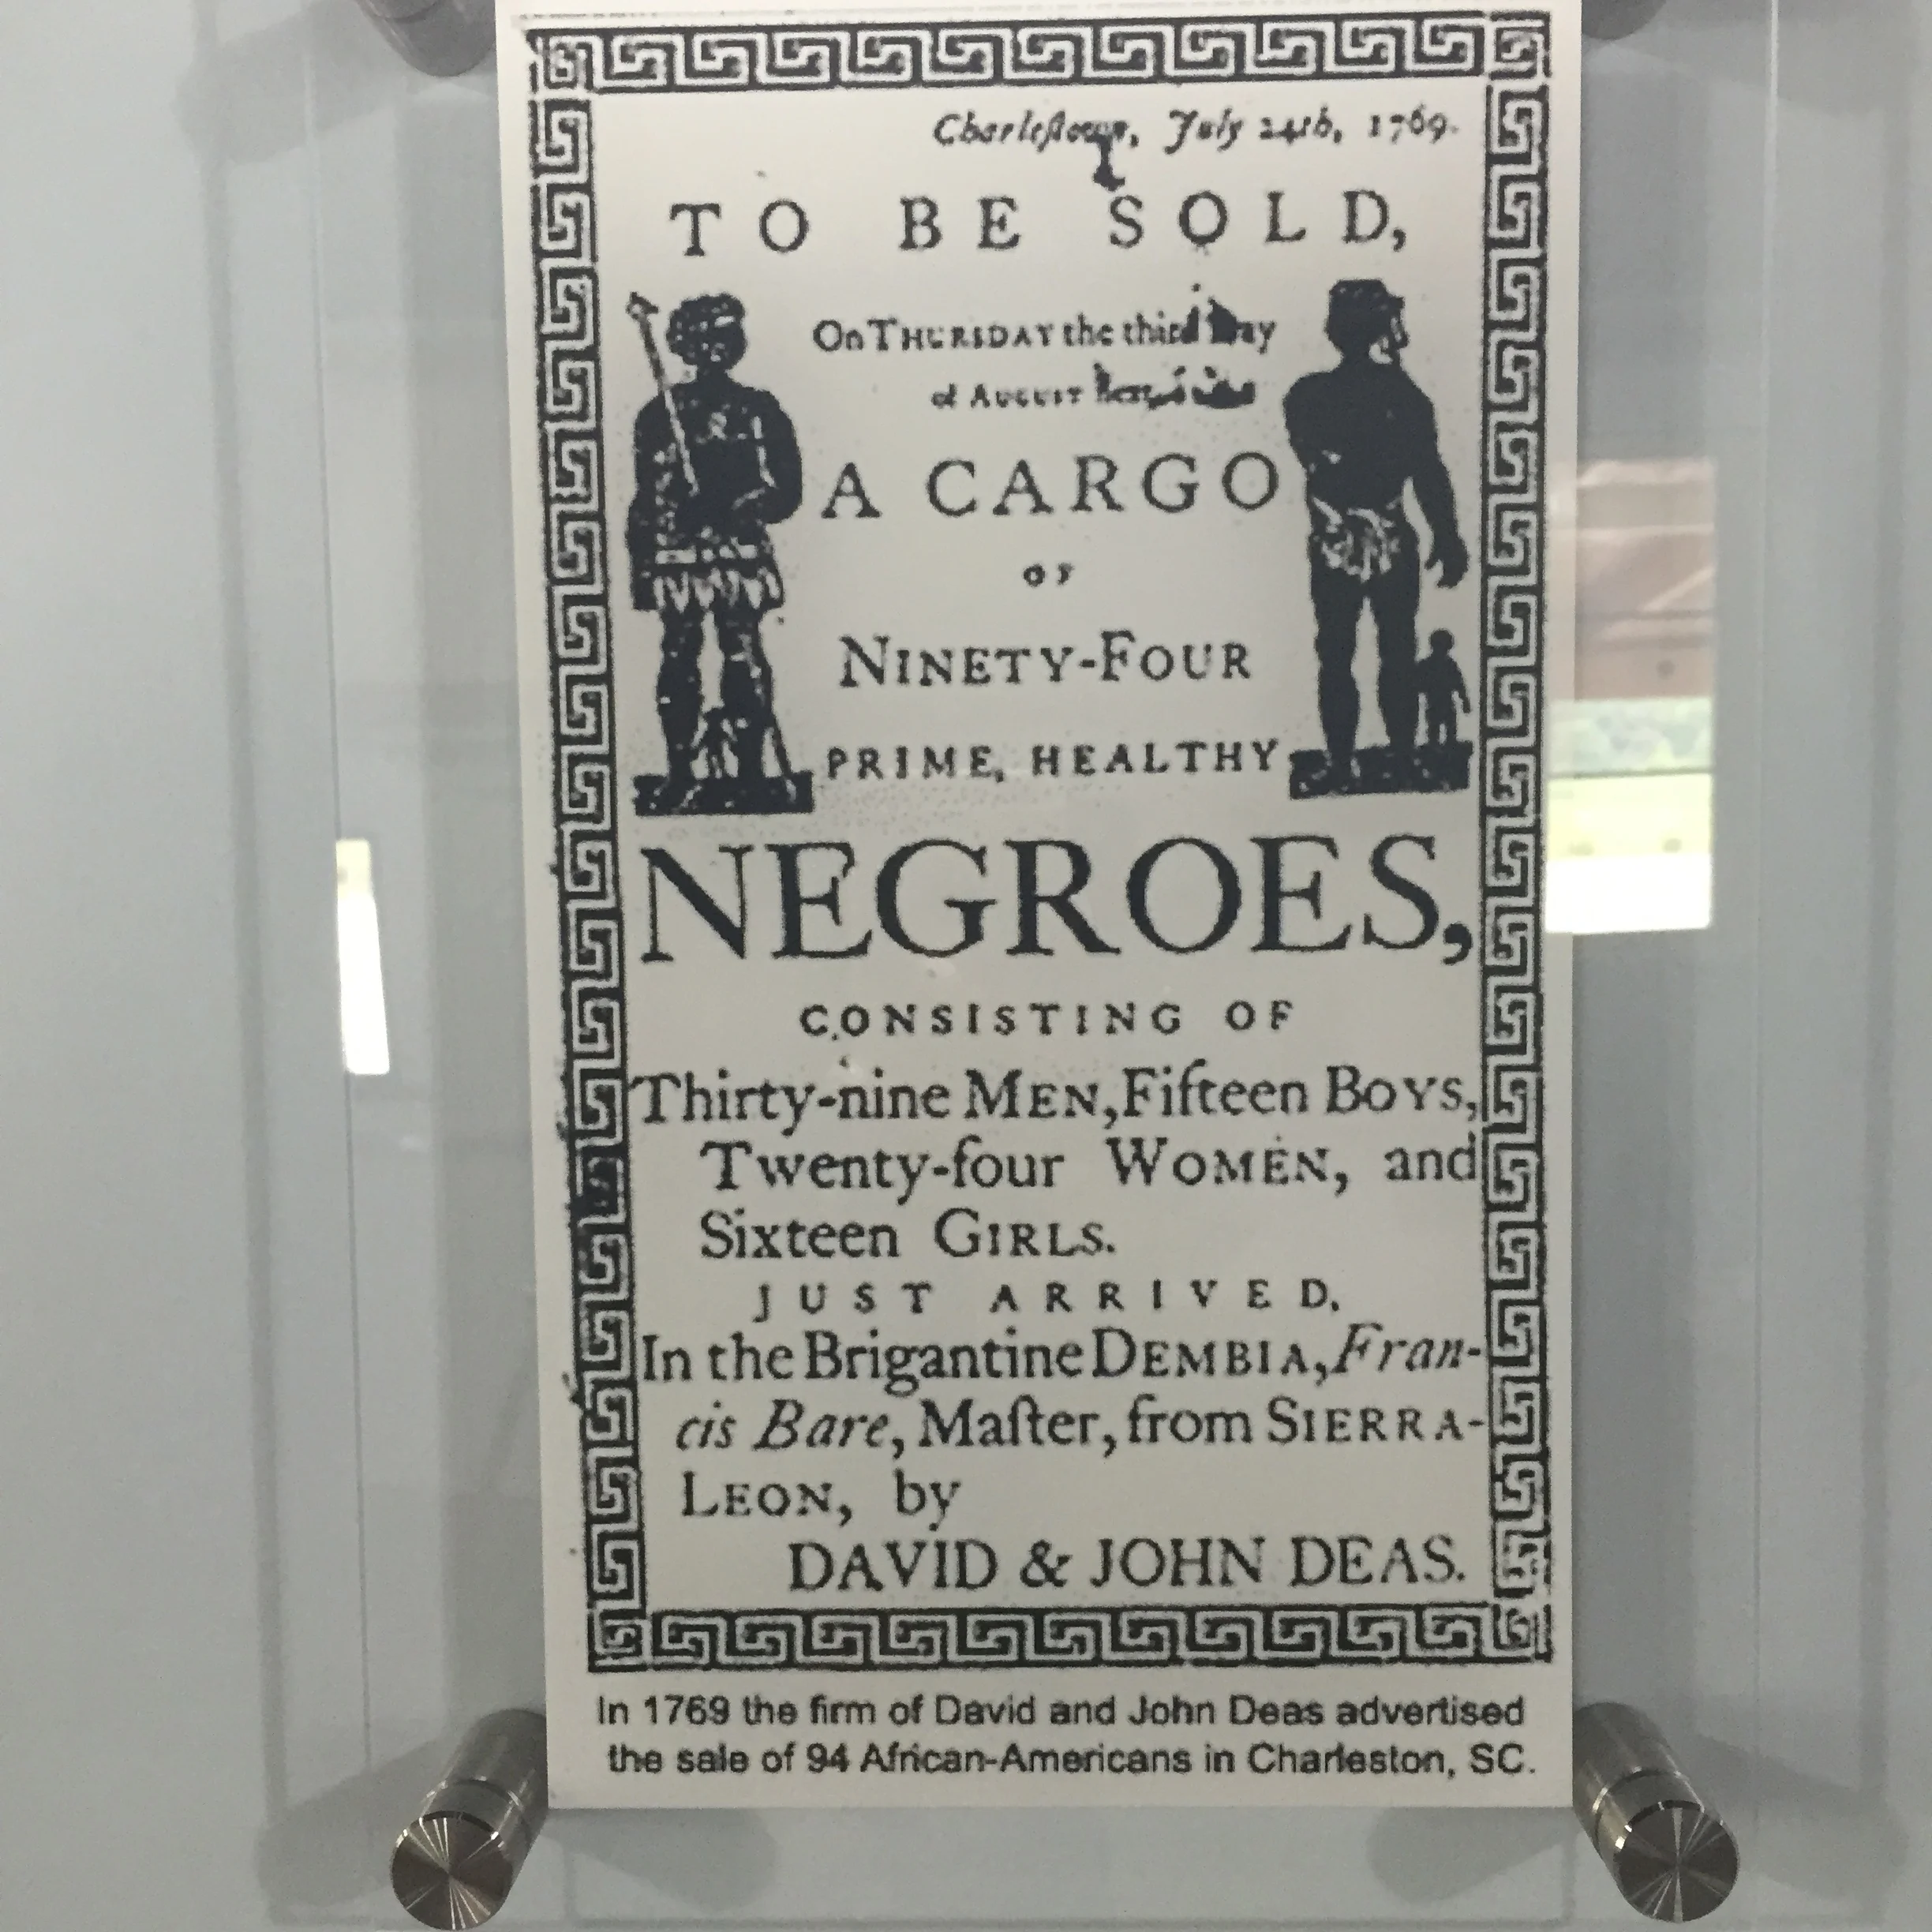 Charleſtown, July 24th, 1769.
TO BE SOLD,
On THURSDAY the third Day
of AUGUST next,
A CARGO
OF
NINETY-FOUR
PRIME, HEALTHY
NEGROES,
CONSISTING OF
Thirty-nine MEN, Fifteen BOYS,
Twenty-four WOMEN, and
Sixteen GIRLS.
JUST ARRIVED,
In the Brigantine DEMBIA, Fran-
cis Bare, Maſter, from SIERRA-
LEON, by
DAVID & JOHN DEAS.
In 1769 the firm of David and John Deas advertised
the sale of 94 African-Americans in Charleston, SC.